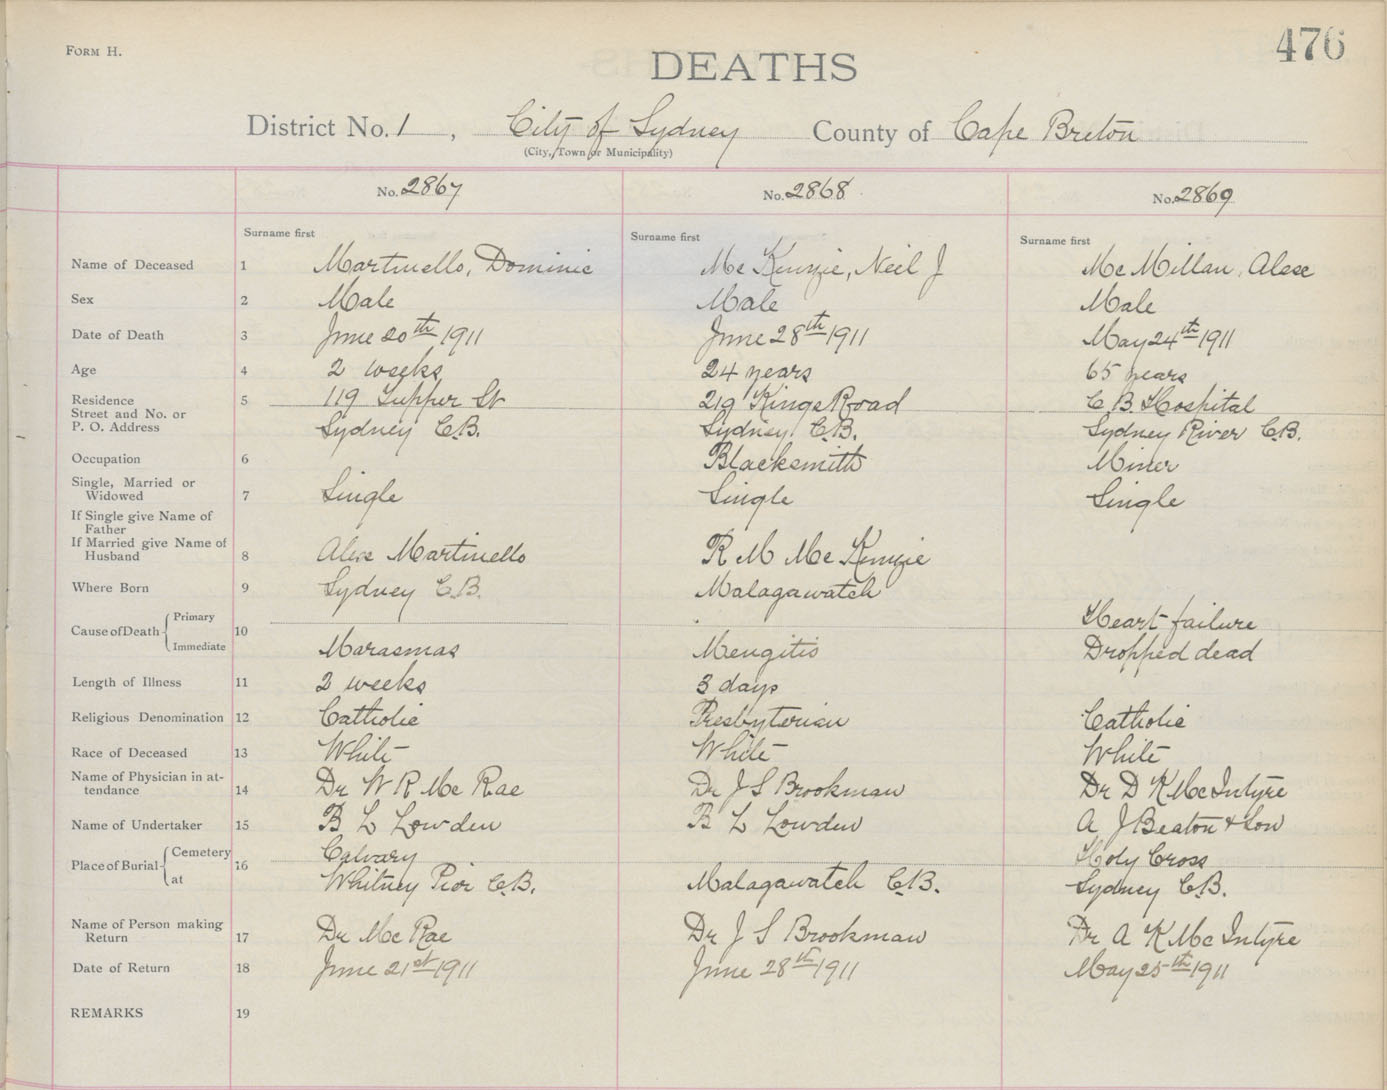 Form H.
476
DEATHS
District No. 1, City of Sydney County of Cape Breton
(City, Town or Municipality)
No. 2867 No. 2868 No. 2869
Surname first Surname first Surname first
Name of Deceased 1 Martinello, Dominic Mc Kenzie, Neil J Mc Millan, Alex
Sex 2 Male Male Male
Date of Death 3 June 20th 1911 June 28th 1911 May 24th 1911
Age 4 2 weeks 24 years 65 years
Residence 5 119 Tupper St 219 Kings Road C.B. Hospital
Street and No. or
P. O. Address Sydney C.B. Sydney C.B. Sydney River C.B.
Occupation 6 Blacksmith Miner
Single, Married or
Widowed 7 Single Single Single
If Single give Name of
Father
If Married give Name of
Husband 8 Alex Martinello R M Mc Kenzie
Where Born 9 Sydney C.B. Malagawatch
Cause of Death Primary 10 Heart failure
Immediate Marasmas Mengitis Dropped dead
Length of Illness 11 2 weeks 3 days
Religious Denomination 12 Catholic Presbyterian Catholic
Race of Deceased 13 White White White
Name of Physician in at-
tendance 14 Dr W R Mc Rae Dr J S Brookman Dr D K Mc Intyre
Name of Undertaker 15 B L Lowden B L Lowden A J Beaton & Son
Place of Burial Cemetery 16 Calvary Holy Cross
at Whitney Pior C.B. Malagawatch C.B. Sydney C.B.
Name of Person making
Return 17 Dr Mc Rae Dr J S Brookman Dr A K Mc Intyre
Date of Return 18 June 21st 1911 June 28th 1911 May 25th 1911
REMARKS 19